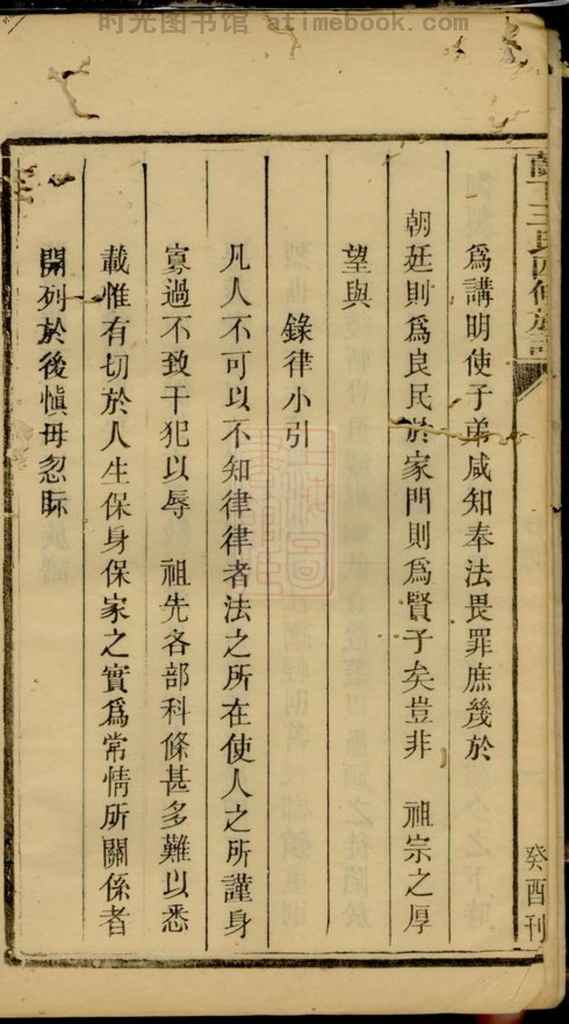 时光图书馆 atimebook.com
為講明使子弟咸知奉法畏罪庶幾於
朝廷則為良民於家門則為賢子矣豈非 祖宗之厚
望與
錄律小引
凡人不可以不知律律者法之所在使人之所謹身
寡過不致干犯以辱 祖先各部科條甚多難以悉
載惟有切於人生保身保家之實為常情所關係者
開列於後慎毋忽眎
癸酉刊